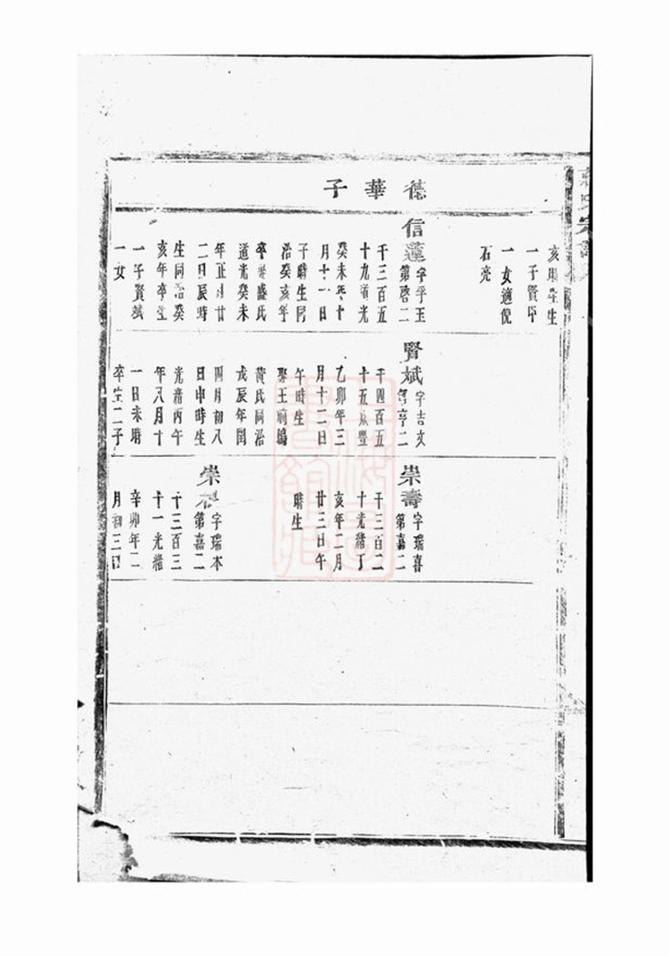 德華子
亥時生生
一子賢
一女適倪
石亮
信蓮字孚玉
第啓二
千三百五
十九道光
癸未年十
月十一日
子時生同
治癸亥年
卒娶盛氏
道光癸未
年正月廿
二日辰時
生同治癸
亥年卒生
一子賢斌
一女
賢斌字吉文
亨二
千四百五
十五咸豐
乙卯年三
月十二日
午時生
娶王廟
黃氏同治
戊辰年閏
四月初八
日申時生
光緒丙午
年八月十
一日未時
卒生二子
崇壽字瑞喜
第嘉二
千三百二
十光緒丁
亥年二月
廿三日午
時生
崇字瑞本
第嘉二
千三百三
十一光緒
辛卯年二
月初三日